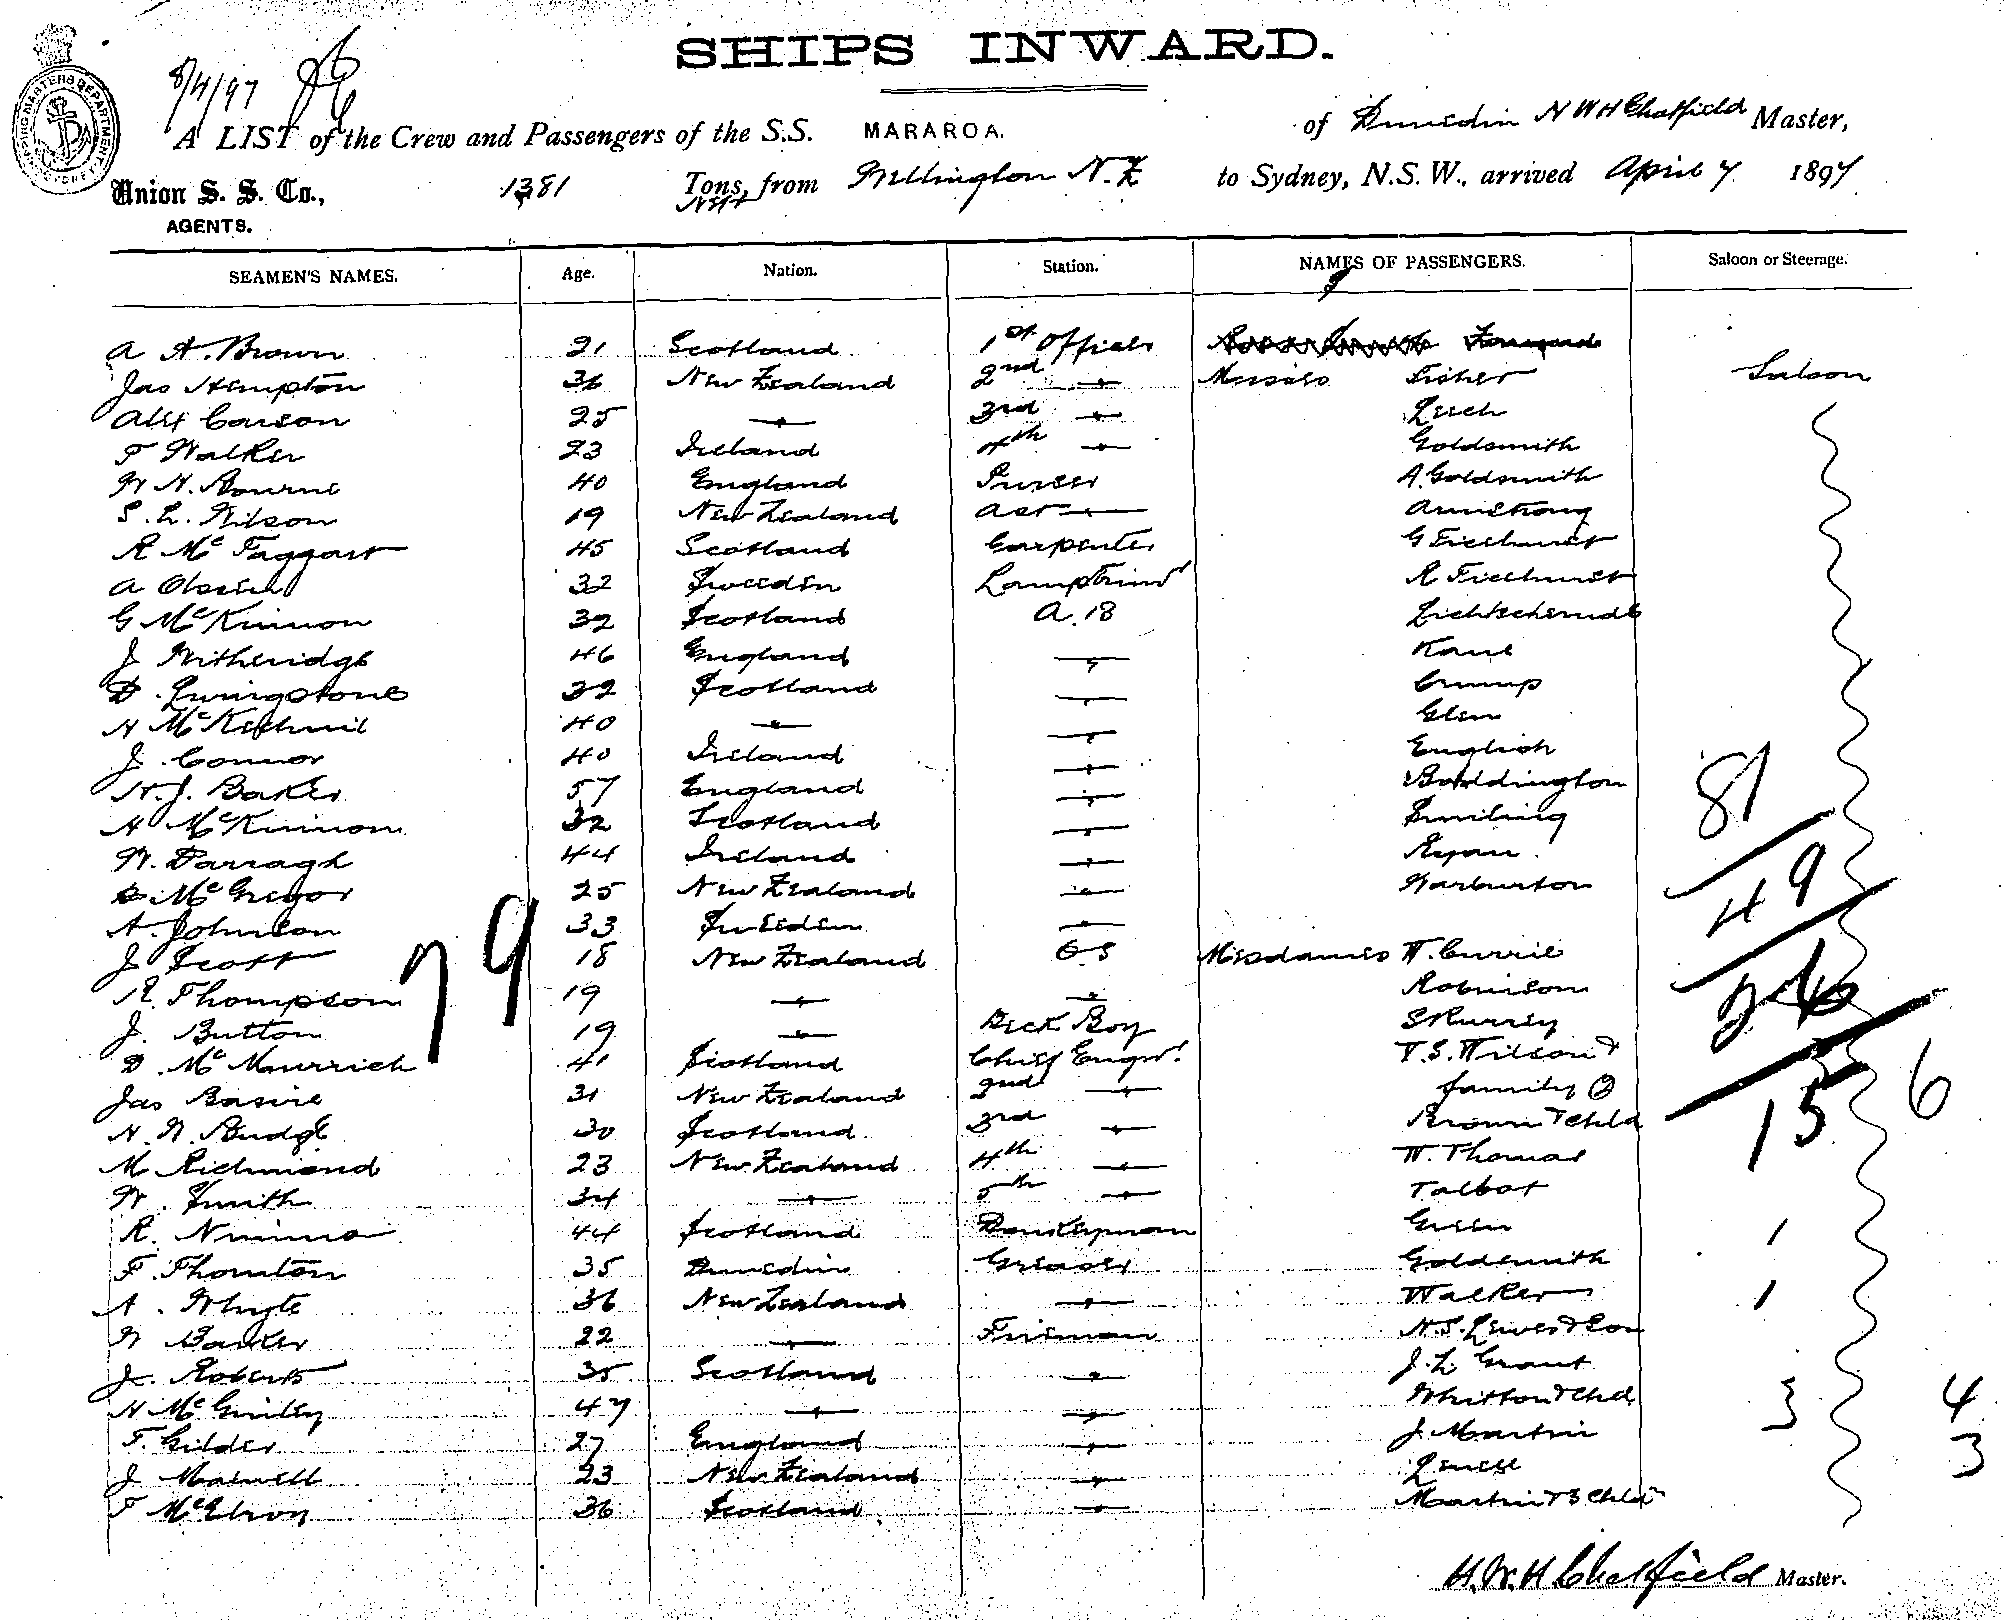 SHIPS INWARD.
SHIPPING MASTERS DEPARTMENT SYDNEY
8/4/97
A LIST of the Crew and Passengers of the S.S. MARAROA. of Dunedin H W H Chatfield Master,
Union S. S. Co., 1381 Tons, from Wellington N.Z to Sydney, N.S.W., arrived April 7 1897
Nett
AGENTS.
SEAMEN'S NAMES. Age. Nation. Station. NAMES OF PASSENGERS. Saloon or Steerage.
A A. Brown 21 Scotland 1st Officer
Jas Hempton 36 New Zealand 2nd " Messrs Fisher Saloon
Alex Carson 25 " 3rd " Leech
F Walker 23 Ireland 4th " Goldsmith
W H. Bourne 40 England Purser A. Goldsmith
S. L. Wilson 19 New Zealand Ast " Armstrong
R Mc Taggart 45 Scotland Carpenter G
A 32 Sweeden Lamptrimr R
G McKinnon 32 Scotland A.B
J Witheridge 46 England " Kane
D. Livingstone 32 Scotland " Crump
A 40 " " Glen
J. Connor 40 Ireland " English
W. J. Baker 57 England " Boddington
A McKinnon 32 Scotland " Smiling
W. Darragh 44 Ireland " Ryan
D McGregor 25 New Zealand " Warburton
A. Johnson 33 Sweeden "
J Scott 18 New Zealand O S Mesdames W. Currie
R. Thompson 19 " " Robinson
J. Button 19 " Deck Boy Skurrey
D. McMurrich 41 Scotland Chief Engnr. T. S. Wilson &
Jas Basire 31 New Zealand 2nd " family 2
H. W. Budge 30 Scotland 3rd " Brown & Chld
M Richmond 23 New Zealand 4th " W. Thomas
W. Smith 34 " 5th " Talbot
R. Nimmo 44 Scotland Donkeyman Green
F. Thornton 35 Dunedin Greaser Goldsmith
A. Whyte 36 New Zealand " Walker
W Barker 22 " Fireman H. S. Lewes & Son
J. Roberts 35 Scotland " J. L. Grant
H McGinley 47 " " Whitton & Chld
F. Gilder 27 England " J. Martin
J Maxwell 23 New Zealand "
F McElroy 36 Scotland " Martin & 3 Chld
79
81
49
26
15
6
1
1
3
4
3
H. W. H Chatfield Master.